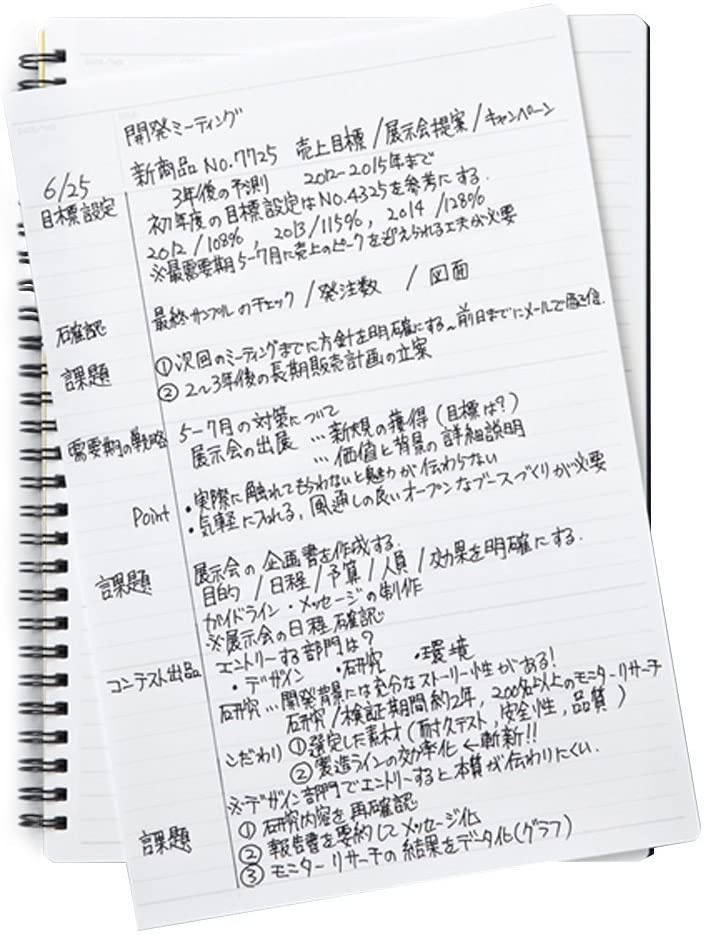 開発ミーティング
6/25 新商品 No.7725 売上目標/展示会提案/キャンペーン
目標設定 3年後の予測 2012~2015年まで
初年度の目標設定はNo.4325を参考にする.
2012/108%, 2013/115%, 2014/128%
※最需要期5~7月に売上のピークを迎えられる工夫が必要
確認 最終サンプルのチェック/発注数 / 図面
課題 ①次回のミーティングまでに方針を明確にする~前日までにメールで配信.
② 2~3年後の長期販売計画の立案
需要期の戦略 5~7月の対策について
展示会の出展 …新規の獲得(目標は?)
…価値と背景の詳細説明
Point ・実際に触れてもらわないと魅力が伝わらない
・気軽に入れる,風通しの良いオープンなブースづくりが必要
課題 展示会の企画書を作成する.
目的 /日程/予算/人員/効果を明確にする.
ガイドライン・メッセージの制作
※展示会の日程確認
コンテスト出品 エントリーする部門は?
・デザイン ・研究 ・環境
研究…開発背景には充分なストーリー性がある!
研究/検証期間約2年, 200名以上のモニターリサーチ
こだわり ①選定した素材(耐久テスト,安全性,品質)
②製造ラインの効率化←斬新!!
※デザイン部門でエントリーすると本質が伝わりにくい.
課題 ①研究内容を再確認
②報告書を要約してメッセージ化
③モニターリサーチの結果をデータ化(グラフ)